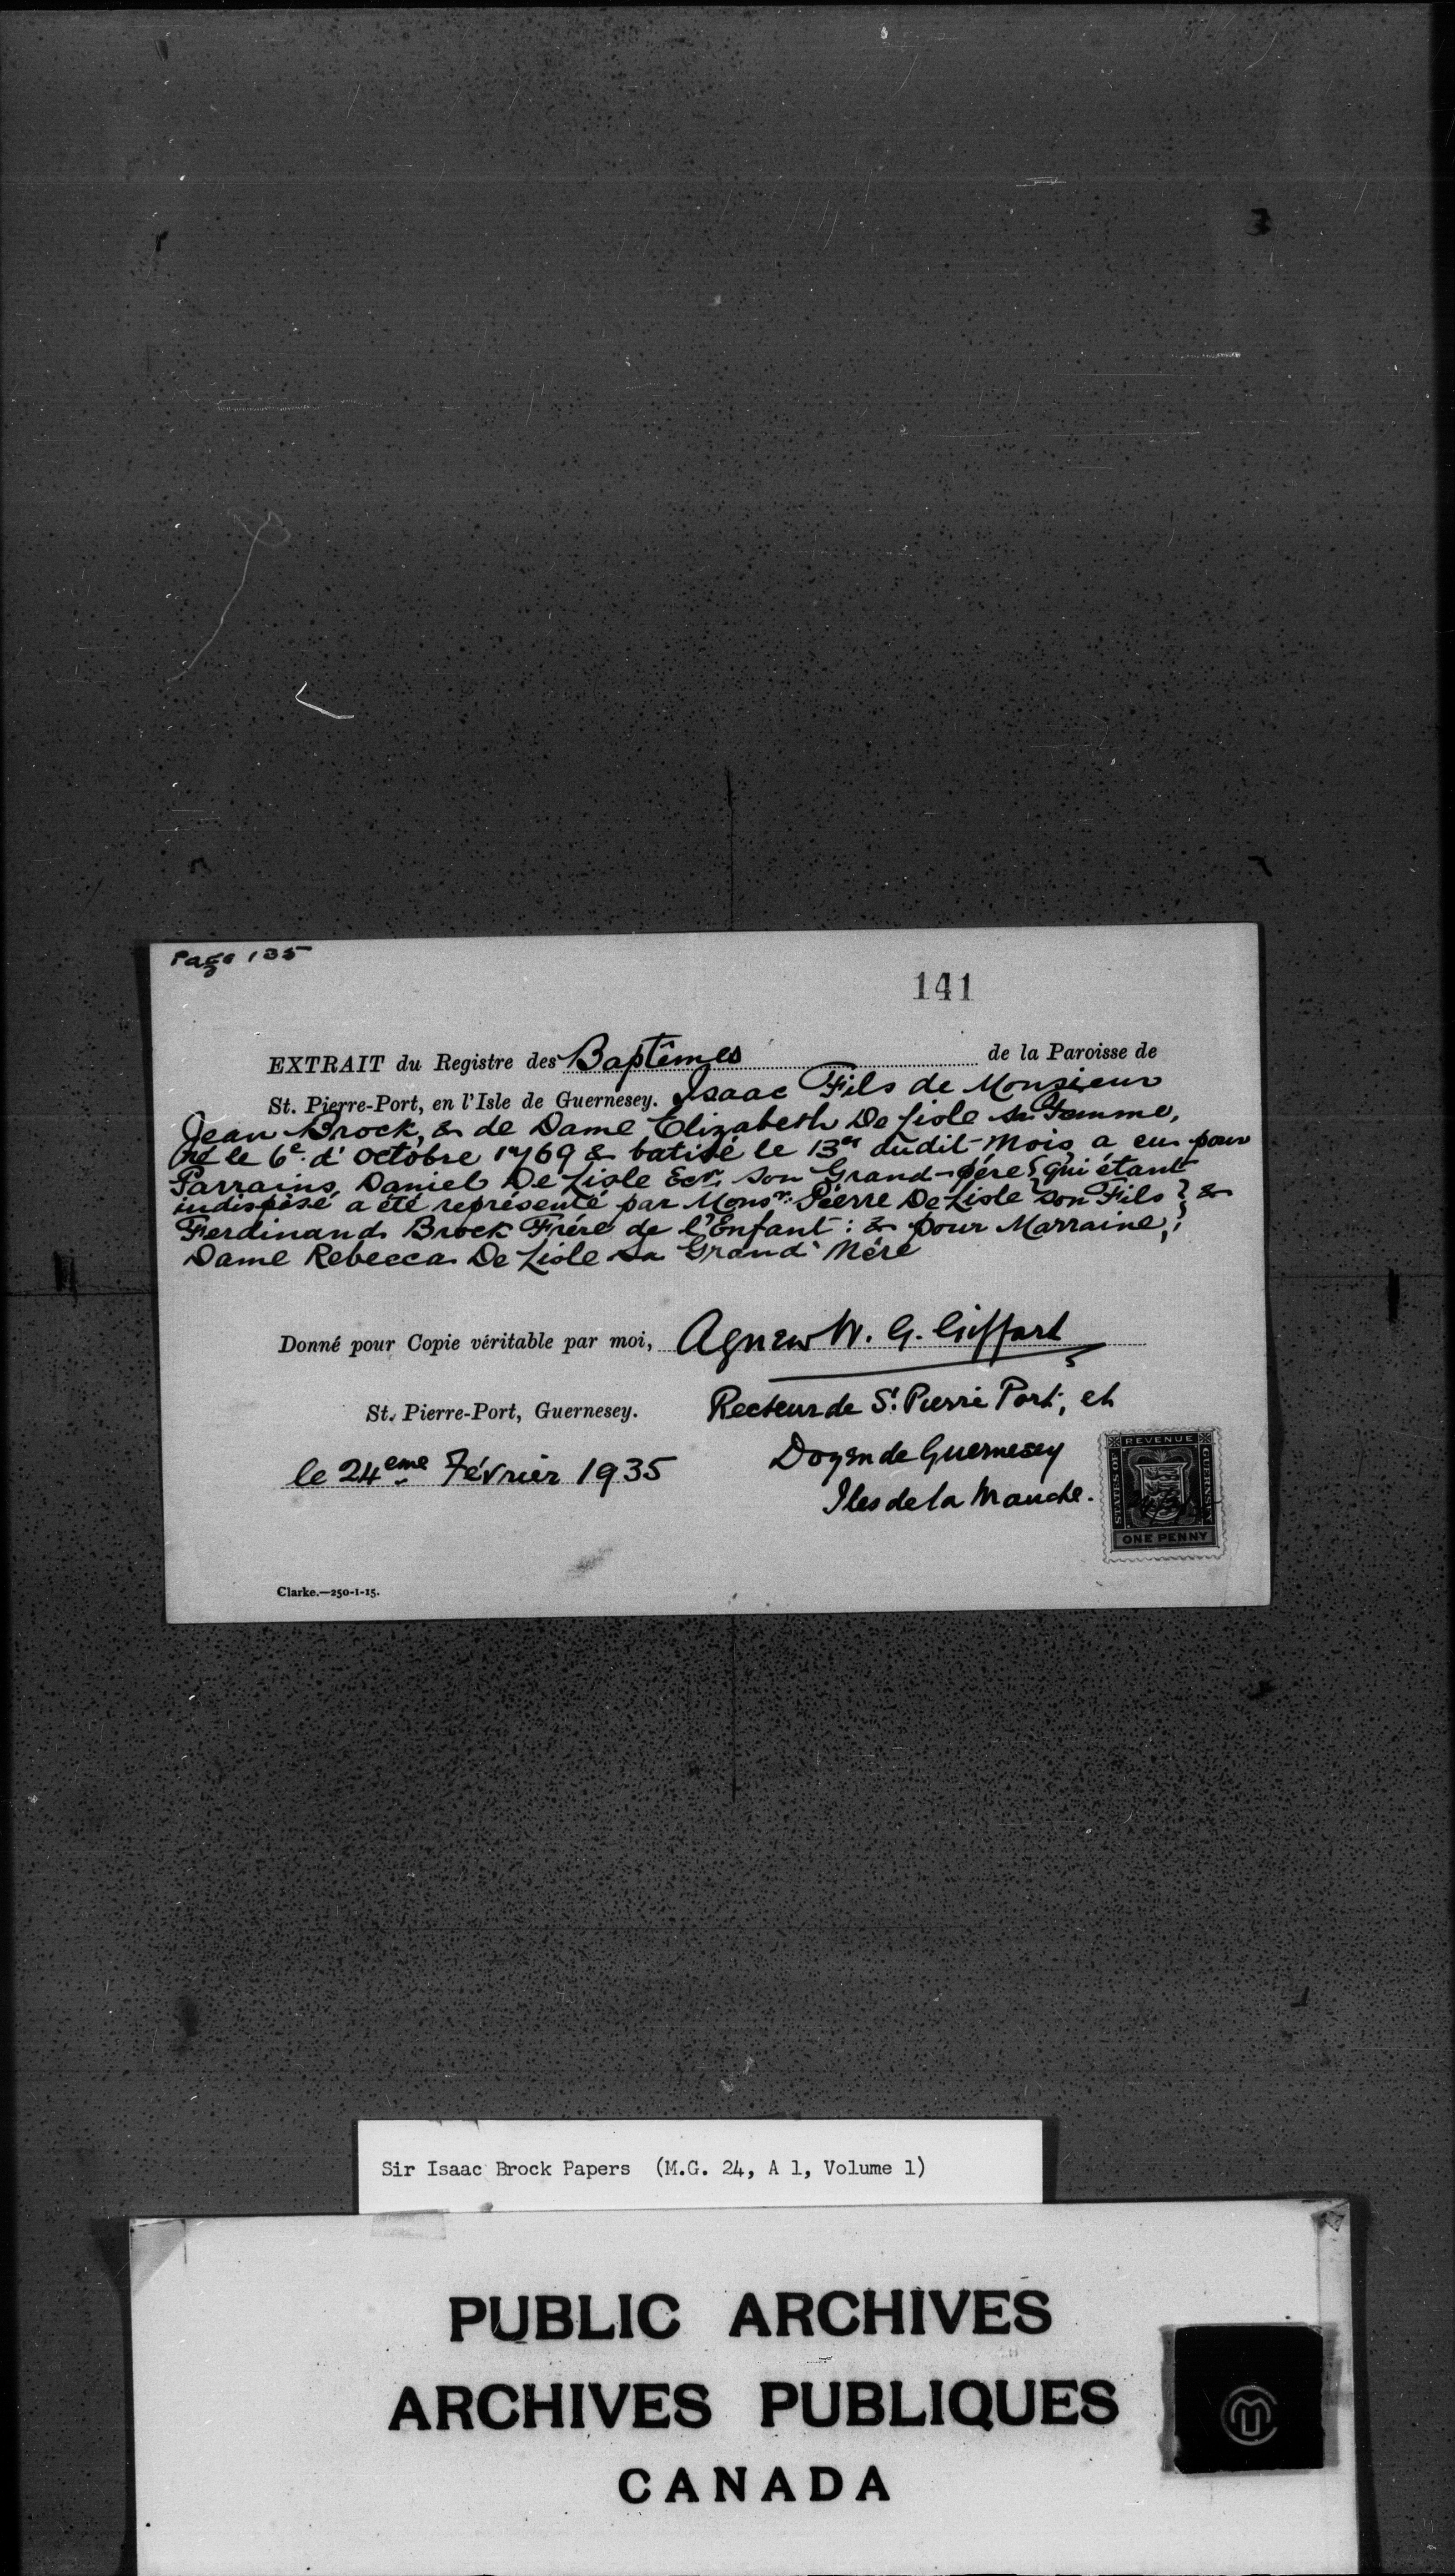 Page 135
141
EXTRAIT du Registre des Baptêmes de la Paroisse de
St. Pierre-Port, en l'Isle de Guernesey. Isaac Fils de Monsieur
Jean Brock, & de Dame Elizabeth De Lisle sa Femme,
né le 6e. d'Octobre 1769 & batisé le 13er dudit Mois, a eu pour
Parrains, Daniel De Lisle Ecr. son Grand-pére {qui étant
indisposé a été représenté par Monsr. Pierre De Lisle son Fils} &
Ferdinand Brock Frére de l'Enfant: & pour Marraine;
Dame Rebecca De Lisle sa Grand' Mére
Donné pour Copie véritable par moi, Agnew W. G. Giffard
St. Pierre-Port, Guernesey. Recteur de St. Pierre Port, et
Doyen de Guernesey
le 24eme Février 1935
Iles de la Manche.
REVENUE
STATES OF GUERNSEY
ONE PENNY
Clarke.—250-1-15.
Sir Isaac Brock Papers (M.G. 24, A 1, Volume 1)
PUBLIC ARCHIVES
ARCHIVES PUBLIQUES
CANADA